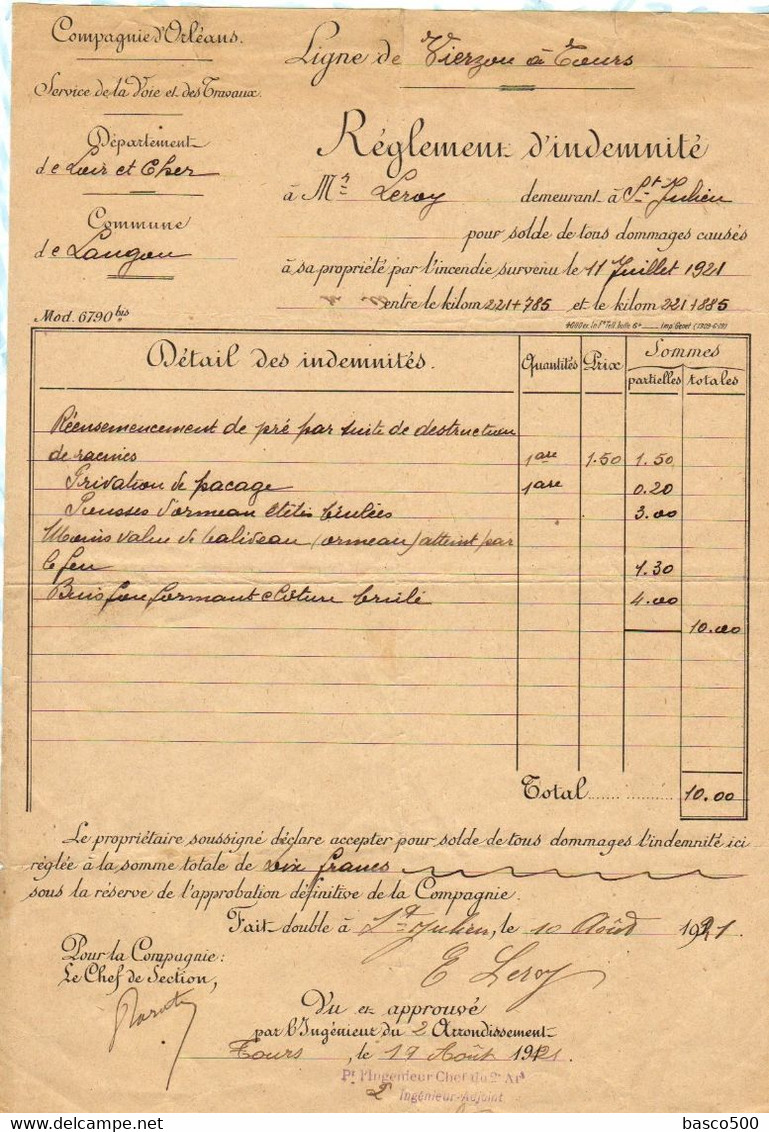 Compagnie d'Orléans.
Service de la Voie et des Travaux.
Département
de Loir et Cher
Commune
de Langon
Mod. 6790 bis
Ligne de Vierzon à Tours
Règlement d'indemnité
à Mr Leroy demeurant à St Julien
pour solde de tous dommages causés
à sa propriété par l'incendie survenu le 11 Juillet 1921
entre le kilom 221+785 et le kilom 221 885
Détail des indemnités. Quantités Prix Sommes
partielles totales
Réensemencement de pré par suite de destruction
de racines 1 are 1.50 1.50
Privation de pacage 1 are 0.20
Pousses d'ormeau et brûlées 3.00
Moins value de baliveau (ormeau) atteint par
le feu 1.30
Buisson formant clôture brûlé 4.00
10.00
Total 10.00
Le propriétaire soussigné déclare accepter pour solde de tous dommages l'indemnité ici
réglée à la somme totale de dix francs
sous la réserve de l'approbation définitive de la Compagnie.
Fait double à St Julien, le 10 Août 1921
Pour la Compagnie:
Le Chef de Section,
E Leroy
Vu et approuvé
par l'Ingénieur du 2 Arrondissement
Tours, le 19 Août 1921.
Pr l'Ingénieur Chef du 2e Art
Ingénieur-Adjoint
basco500